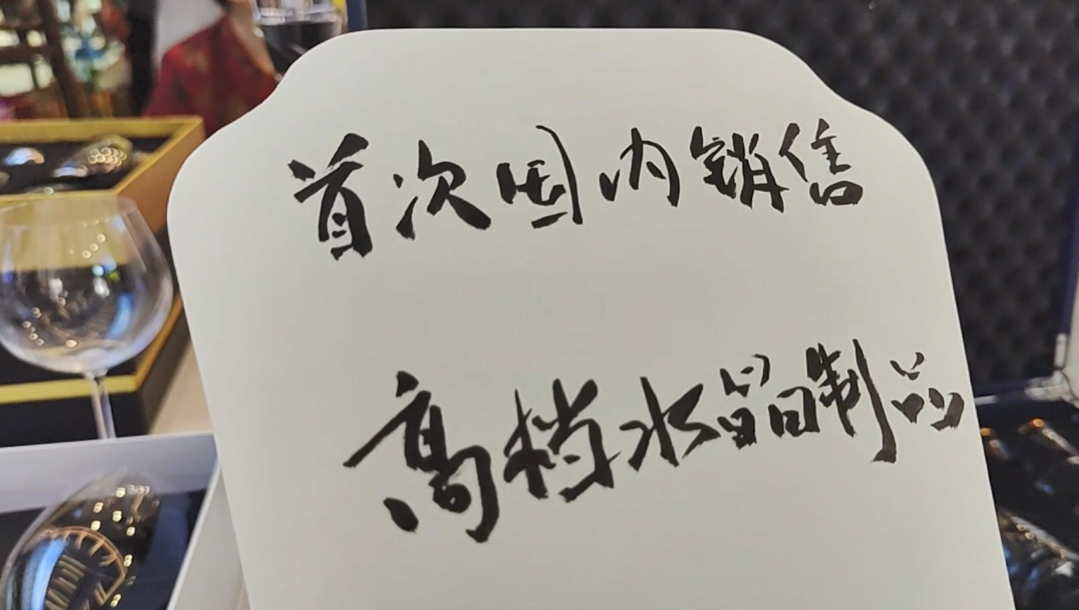 首次国内销售
高档水晶制品